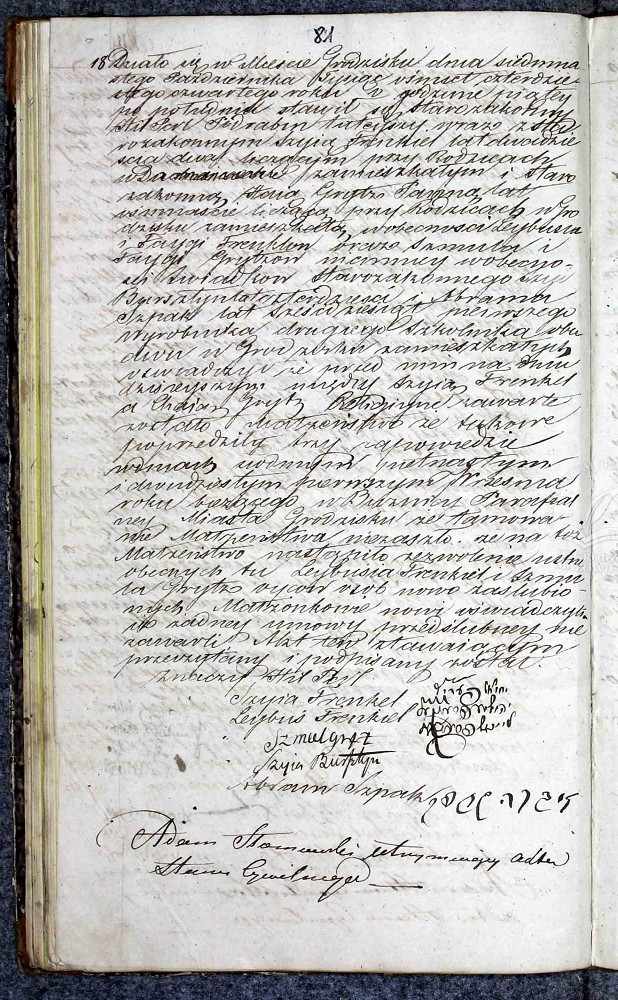 81
18 Działo się w Mieście Grodzisku dnia siedmna
stego Października Tysiąc ośmset czterdzie
stego czwartego roku o godzinie piątey
po południu stawił się Starozakonny
Hil Perl Podrabin tuteyszy wraz z Sta
rozakonnym Szyia Frenkiel lat dwadzie
ścia dwa liczącym przy Rodzicach
zamieszkałym i Staro
zakonną Chaia Grytz Panną lat
ośmnaście liczącą przy Rodzicach w Gro
dzisku zamieszkałą, w obecności Leybusia
i Faygi Frenklow oraz Szmula i
Faygi Grytzow niemniey w obecno-
ści Swiadkow Starozakonnego Szyi
Bursztyn lat czterdzieści i Abrama
Szpak lat sześćdziesiąt pierwszego
wyrobnika drugiego Szkolnika obu
dwu w Grodzisku zamieszkałych
oświadczył że przed nim na dniu
dzisieyszym między Szyia Frenkel
a Chaią Grytz Religijne zawarte
zostało Małżeństwo że takowe
poprzedziły trzy zapowiedzie
w dniach siódmym piętnastym
i dwudziestym pierwszym Września
roku bieżącego w Bożnicy Parafial
ney Miasta Grodzisku że tamowa
nie Małżeństwa niezaszło. że na toż
Małżeństwo nastąpiło zezwolenie ustne
obecnych tu Leybusia Frenkiel i Szmu
la Grytz oyców osób nowo zaslubio
nych. Małżonkowie nowi oświadczyli
iż żadney umowy przedślubney nie
zawarli Akt ten stawaiącym
przeczytany i podpisany został.
Hil Perl
Szyia Frenkel
Leybuś Frenkiel
Szmul Grytz
Szyia Bursztyn
Abram Szpak
Adam utrzymuiący akta
Stanu Cywilnego